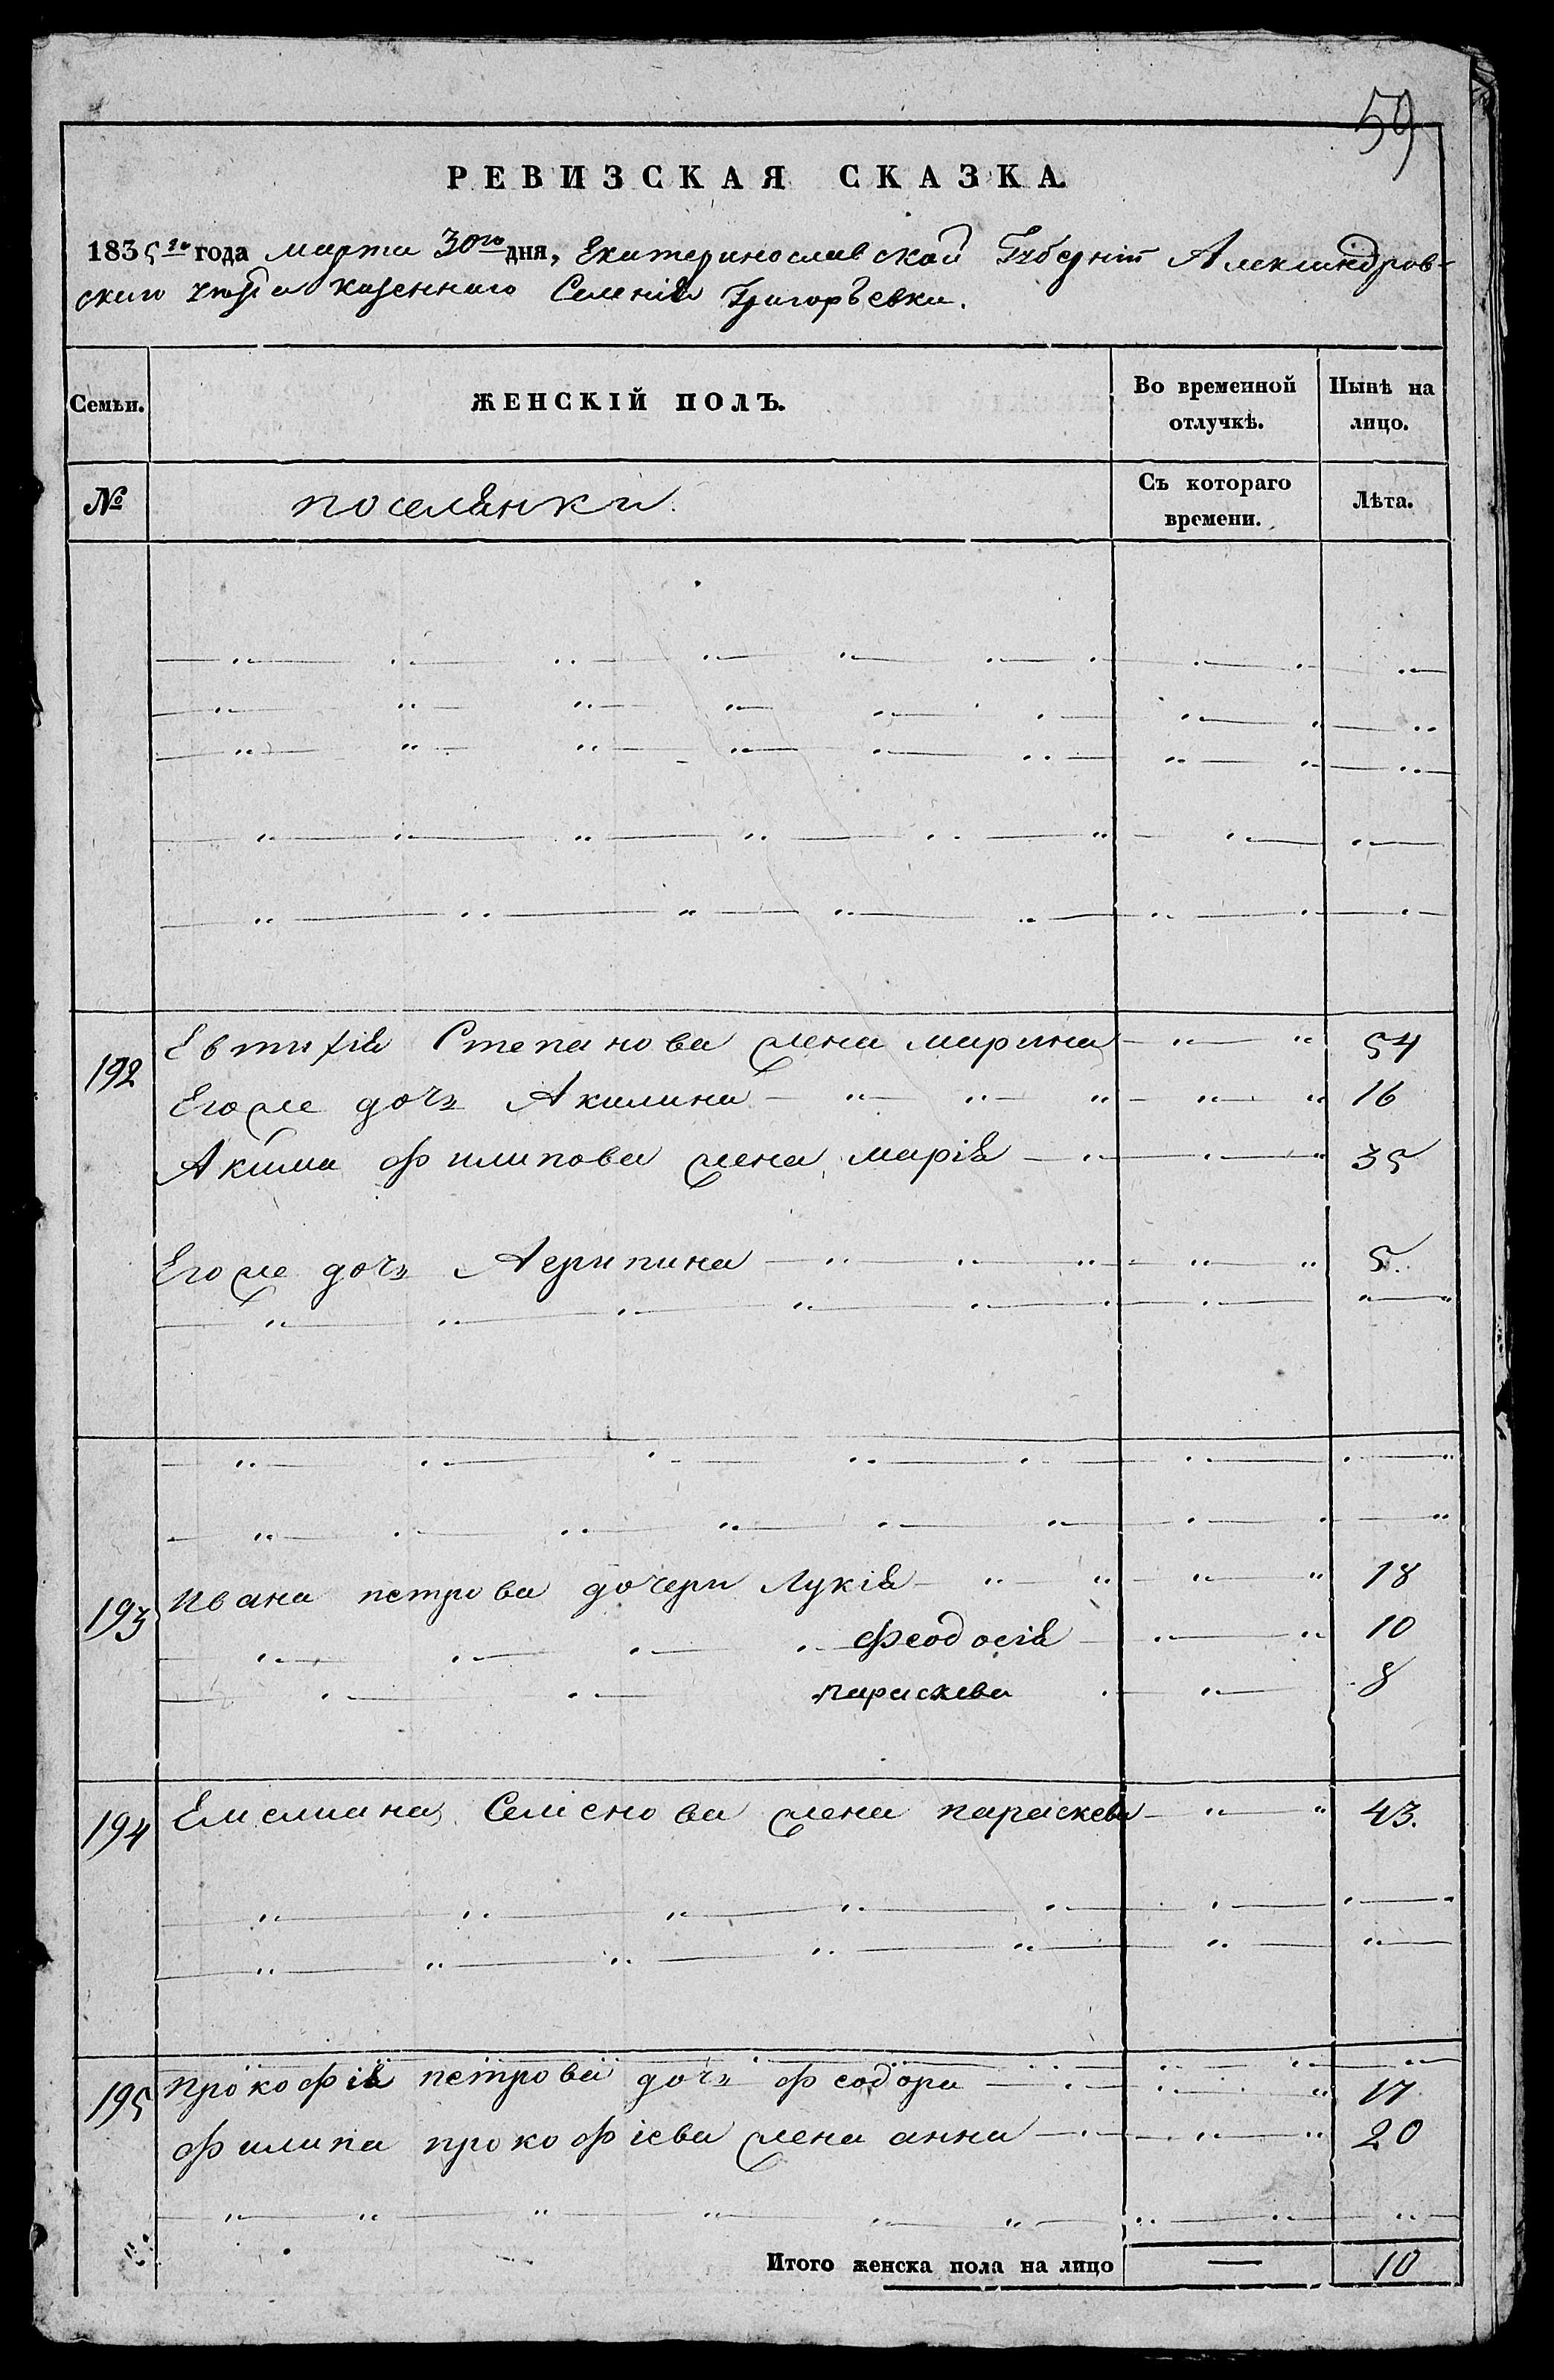 59
РЕВИЗСКАЯ СКАЗКА.
1835го года марта 30го дня, Екатеринославской Губерніи Александров-
скаго уезда казеннаго Селенія Григорьевки.
Семьи. ЖЕНСКІЙ ПОЛЪ. Во временной отлучкѣ. Нынѣ на лицо.
№ поселянки. Съ котораго времени. Лѣта.
192 Евтихія Степанова жена марина 54
Егоже дочь Акилина 16
Акима филипова жена марія 35
Егоже дочь Агрипина 5.
193 ивана петрова дочери Лукія 18
феодосія 10
параскева 8
194 Емелиана Семенова жена параскева 43.
195 прокофія петрова дочь феодора 17
филипа прокофіева жена анна 20
Итого женска пола на лицо — 10